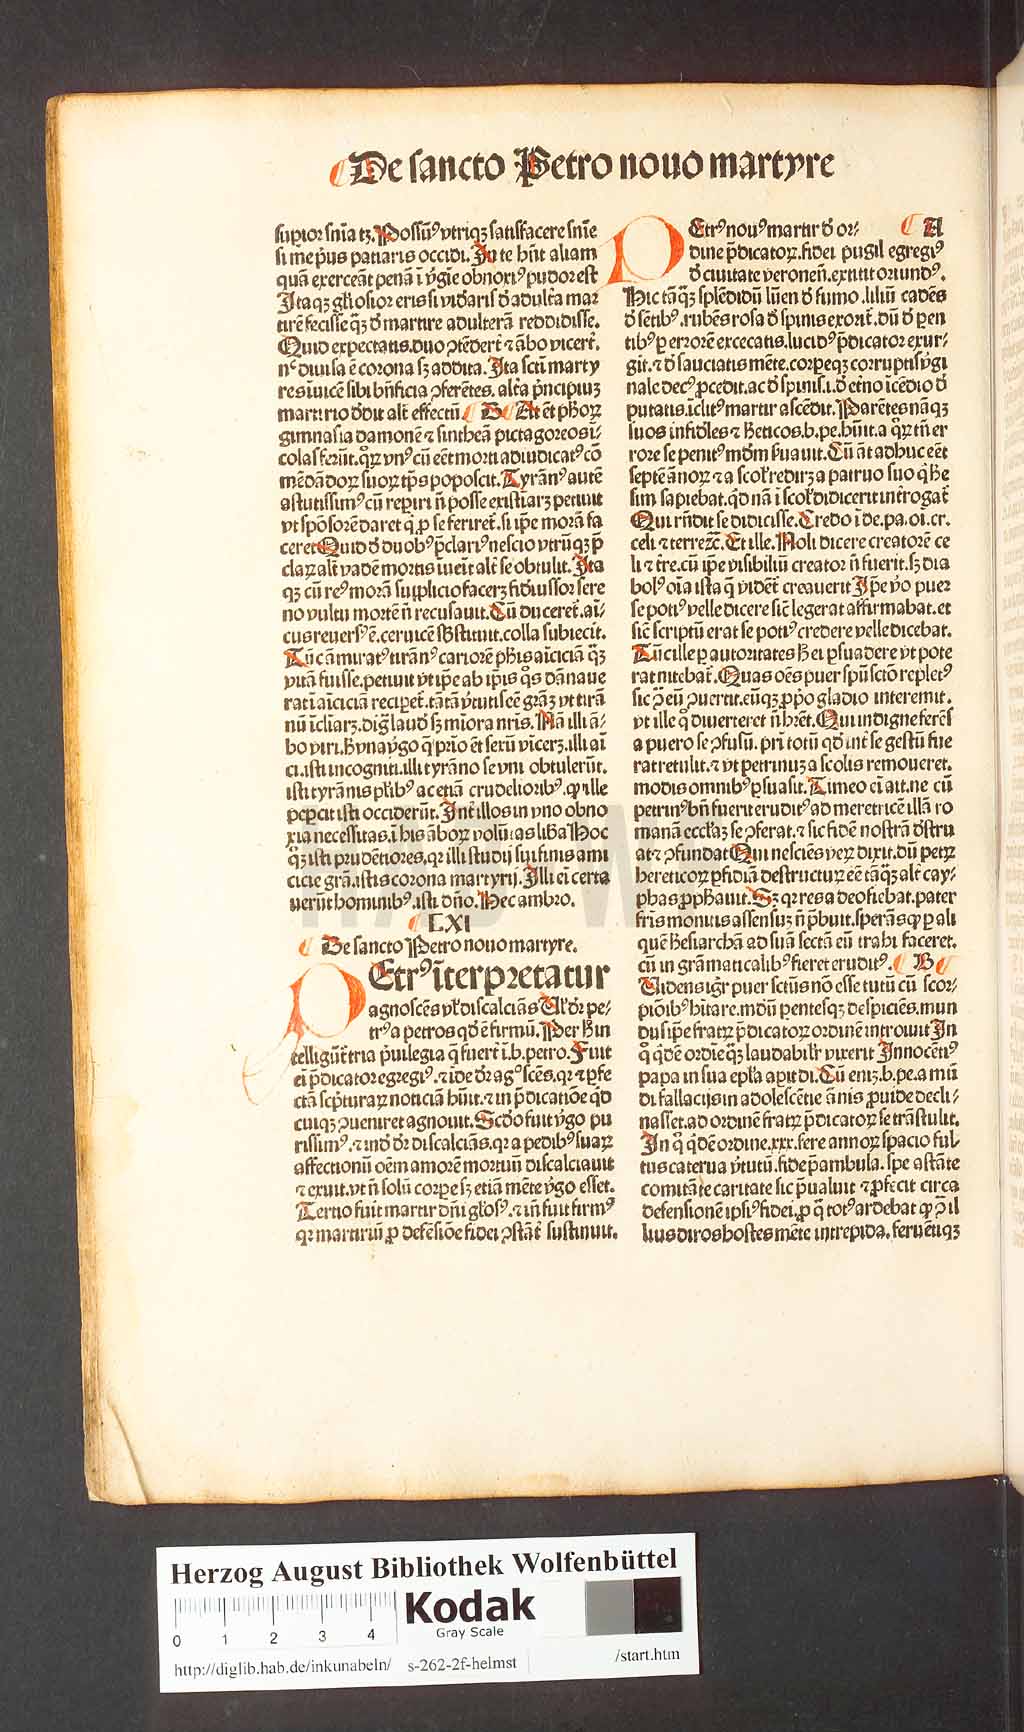 De sancto Petro nouo martyre
supior sn̄ia tꝫ. Possūꝰ vtriqꝫ satisfacere sn̄ie
si me pꝰus patiaris occidi. In te hn̄t aliam
quā exerceāt penā ī v̓gīe obnoriꝰ pudor est
Itaqꝫ gl̓iosior eris si vid̓aris d̓ adult̓a mar
tirē fecisse q̄ꝫ d̓ martire adulterā reddidisse.
Quid expectatis. duo ꝯtēder̄t ⁊ ābo vicer̄t.
nᶜ diuisa ē corona sꝫ addita. Ita scti͞ marty
res ī̄uicē sibi bn̄ficia ꝯferētes. alt̓a p̓ncipiuꝫ
martirio d̓dit alt̓ effectū B At ēt ph̓oꝝ
gimnasia damonē ⁊ sintheā pictagoreos ī-
colas fer̄ūt. qꝝ vnꝰ cū eēt morti adiudicatꝰ cō
mēdādoꝝ suoꝝ tp̄s poposcit. Tyrānꝰ autē
astutissimꝰ cū rep̓iri n̄ posse existīarꝫ petiuit
vt spōsorē daret q̓ ꝓ se feriret̓. si ip̄e morā fa
ceret Quid d̓ duobꝰ p̄clariꝰ nescio vtrūqꝫ p̄
claꝝ alt̓ vadē mortis īueīt alt̓ se obtulit. Ita
qꝫ cū reꝰ morā supplicio facerꝫ fidiussor sere
no vultu mortē n̄ recusauit. Cū duceret̓. aī-
cus reuersꝰ ē. ceruicē sb̓stituit. colla subiecit.
Tūc āmiratꝰ tirānꝰ cariorē ph̓is aīciciā q̄ꝫ
vitā fuisse. petiuit vt ip̄e ab ip̄is q̓s dānaue
rat ī aīciciā recip̓et̓. tātā v̓tutis cē grāꝫ vt tirā
nū īcliarꝫ. dig̓ laud̓ sꝫ mīora nr̄is. Nā illi ā-
bo viri. H̓ vna v̓go q̄ p̓io ēt sexū vīcerꝫ. illi aī
ci. isti incogniti. illi tyrāno se vni obtuler̄ūt.
isti tyrānis pl̓ibꝰ ac etiā crudelioribꝰ. qꝫ ille
pepcit isti occider̄ūt. Int̓ illos in vno obno
xia necessitas. ī his āboꝝ volūtas lib̓a Hoc
q̄ꝫ isti prudētiores. qꝛ illi studij sui finis ami
cicie grā. istis corona martyrij. Illi eī certa
uerūt hominibꝰ. isti dn̄o. Hec ambro.
LXI
De sancto Petro nouo martyre.
PEtrꝰ īterpretatur
agnoscēs vl̓ discalciās Al̓ dr̄ pe-
trꝰ a petros qd̓ ē firmū. Per h̓ in
telligūt̓ tria p̓uilegia q̄ fuer̄t ī. b. petro. Fuit
eī p̄dicator egregiꝰ. ⁊ iō dr̄ agⁿoscēs. qꝛ ⁊ ꝑfe
ctā scp̓turaꝝ noticiā hūit. ⁊ in p̄dicatiōe qd̓
cuiqꝫ ꝯueniret agnouit. Scd̓o fuit v̓go pu
rissimꝰ. ⁊ inō dr̄ discalciās. qꝛ a pedibꝰ suaꝝ
affectionū oēm amorē mortuū discalciauit
⁊ exuit. vt n̄ solū corpe sꝫ etiā mēte v̓go esset.
Tertio fuit martir dn̄i gl̓osꝰ. ⁊ in̄ fuit firmꝰ
qꝛ martiriū ꝓ defēsiōe fidei ꝯstāt̓ sustinuit.
PEtrꝰ nouꝰ martir d̓ or- A
dine p̄dicatoꝝ. fidei pugil egregiꝰ
d̓ ciuitate veronen̄. extitit oriundꝰ.
Hic tāq̄ꝫ splēdidū lūen d̓ fumo. liliū cādēs
d̓ sētibꝰ. rubēs rosa d̓ spinis exorit̓. dū d̓ pen
tibꝰ ꝑ errorē excecatis. lucidꝰ p̄dicator exur-
git. ⁊ d̓ sauciatis mēte. corpeqꝫ corruptis v̓gi
nale decꝰ ꝓcedit. ac d̓ spinis. i. d̓ et̓no īcēdio d̓
putatis. īclitꝰ martir ascēdit. Parētes nāqꝫ
suos infid̓les ⁊ h̓eticos. b. pe. hūit. a qꝝ tn̄ er
rore se penitꝰ mūdm̄ s̓uauit. Cū āt adhuc eēt
septē ānoꝝ ⁊ a scol̓ redirꝫ a patruo suo q̓ h̓e
sim sapiebat. qd̓ nā ī scol̓ didicerit int̓rogat̓
Qui rn̄dit se didicisse. Credo ī de. pa. oī. cr.
celi ⁊ terreꝛc̄. Et ille. Noli dicere creatorē ce
li ⁊ tr̄e. cū ip̄e visibiliū creator n̄ fuerit. sꝫ dia
bolꝰ oīa ista q̄ vidēt̓ creauerit Ip̄e vo puer
se potiꝰ velle dicere sic̄ legerat affirmabat. et
sic̄ scriptū erat se potiꝰ credere velle dicebat.
Tūc ille ꝑ autoritates h̓ ei ꝑsuadere vt pote
rat nitebat̓. Quas oēs puer spū scto̅ repletꝰ
sic ꝯ̄ eū ꝯuertit. eūqꝫ ꝓp̓o gladio interemit.
vt ille q̄ diuerteret n̄ hrēt. Qui indigne ferēs
a puero se ꝯfusū. pr̄i totū qd̓ int̓ se gestū fue
rat retulit. ⁊ vt petrinuꝫ a scolis remoueret.
modis omnibꝰ ꝑsuasit. Timeo eī ait. ne cū
petrinꝰ bn̄ fuerit eruditꝰ ad meretricē illā ro
manā eccl̓iaꝫ se ꝯferat. ⁊ sic fidē nostrā d̓stru
at ⁊ ꝯfundat Qui nesciēs veꝝ dixit. dū petꝝ
hereticoꝝ ꝑfidiā destructuꝝ eē tāq̄ꝫ alt̓ cay-
phas ꝓph̓auit. Sꝫ qꝛ res a deo fiebat. pater
fr̄is monitis assensuꝫ n̄ p̓buit. sperās qꝫ ꝑ ali
quē h̓esiarchā ad suā sectā eū trahi faceret.
cū in grāmaticalibꝰ fieret eruditꝰ. B
Uidens igr̄ puer sctūs nō esse tutū cū scor-
piōibꝰ hītare. mdūꝫ pentesqꝫ despiciēs. mun
dus ip̄e fratꝝ p̄dicatoꝝ ordinē introiuit In
q̄ qdē ordīe q̄ꝫ laudabil̓r vixerit Innocētiꝰ
papa in sua epl̓a aꝑit dī. Cū eniꝫ. b. pe. a mū
di fallacijs in adolescētie ānis ꝓuide decli-
nasset. ad ordinē fratꝝ p̄dicatoꝝ se trāstulit.
In q̄ qdē ordine. xxx. fere annoꝝ spacio ful-
tus caterua v̓tutū. fide p̄ambula. spe astāte
comitāte caritate sic p̄ualuit ⁊ ꝓfecit circa
defensionē ipsiꝰ fidei. ꝓ q̄ totꝰ ardebat qꝫ ꝯ̄ il
lius diros hostes mēte intrepida. feruētiqꝫ
Herzog August Bibliothek Wolfenbüttel
0 1 2 3 4
Kodak
Gray Scale
http://diglib.hab.de/inkunabeln/ s-262-2f-helmst /start.htm
HAB WF